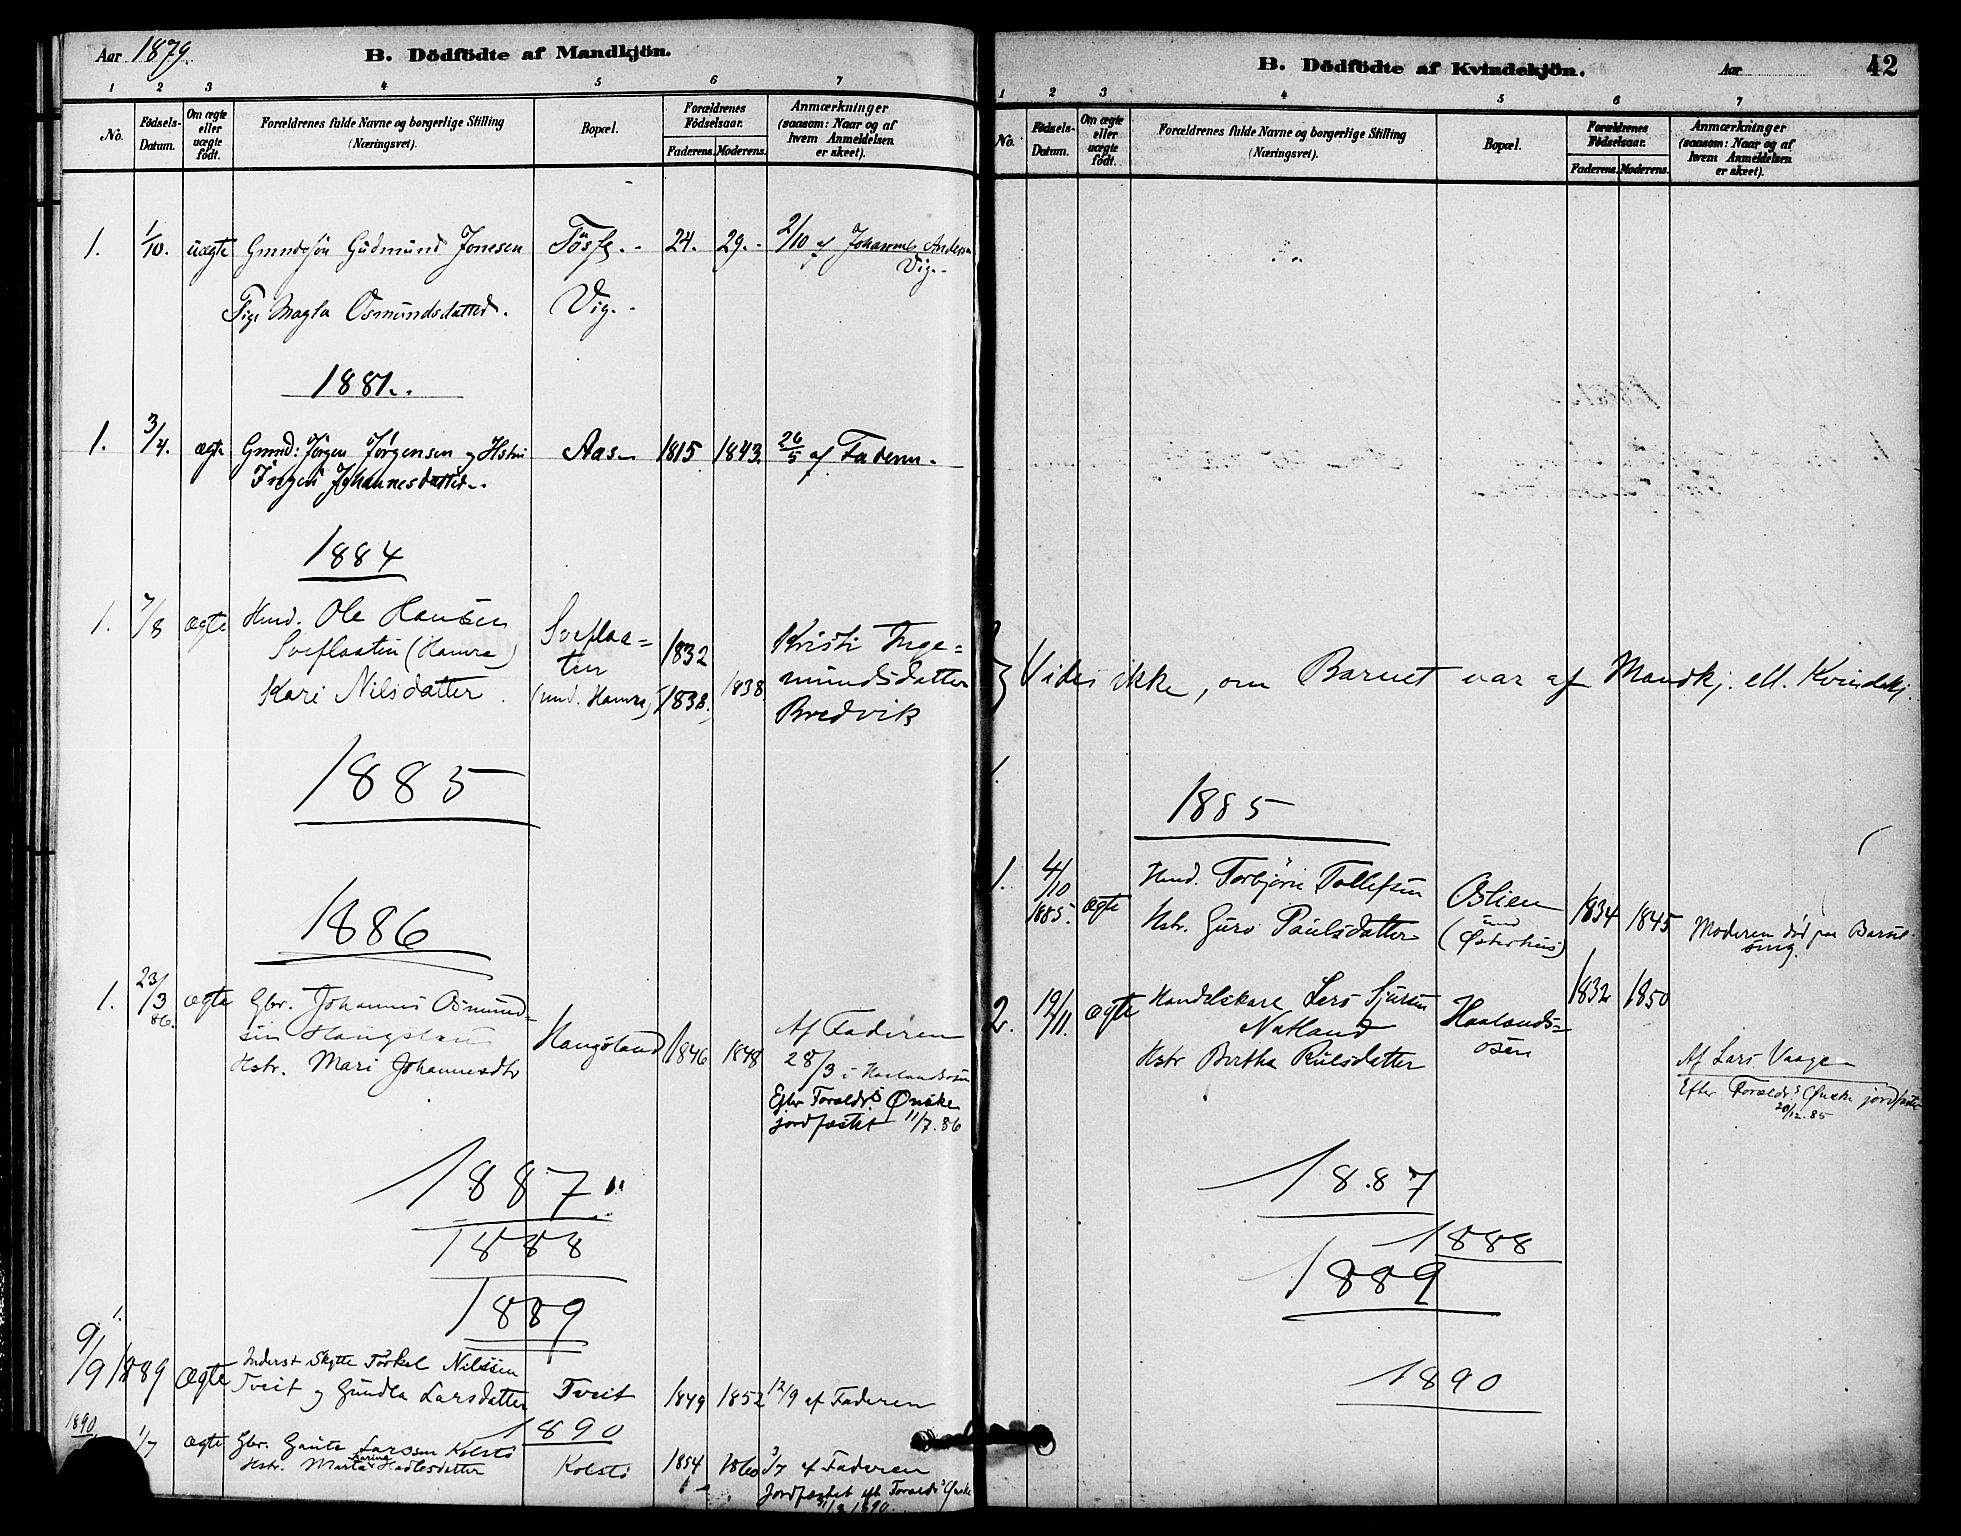 Aar 1879.
B. Dödfödte af Mandkjön.
1 2 3 4 5 6 7
No.
Fødsels-Datum.
Om ægte eller uægte født.
Forældrenes fulde Navne og borgerlige Stilling (Næringsvei).
Bopæl.
Forældrenes Fødselsaar.
Faderens. Moderens.
Anmærkninger (saasom: Naar og af hvem Anmeldelsen er skeet).
1. 1/10. uægte Gudmund Jonesen 24. 29. 2/10 af Johannes Anders
Vig.
Pige Magla Osmundsdatter. Vig.
1881.
1. 3/4. ægte Gmd: Jørgen Jørgensen og Hstru Aas 1815 1843. 26/5 af Faderen.
Johannesdatter.
1884
1. 7/8 ægte Hmd. Ole Hansen
Sveflaatin (Hamra)
Kari Nilsdatter
Sveflaa=
ten
(und. Hamra)
1832
1838. 1838
Kristi Inge=
mundsdatter
Bredvik
1885
1886
1. 23/3 86. ægte Gbr. Johannes Osmund-
sen Haugsland
Hstr. Mari Johannesdtr
Haugsland 1846 1848
Af Faderen
28/3 i Haalandsosen
Efter Forældr.s Ønske
jordfæstet 11/7.86
1887
1888
1889
1.
9/9 1889 Ægte Inderst Skytte Torkel Nilssen
Tveit og Gundla Larsdatter Tveit 1849 1852 12/9 af Faderen
1890
1890
1/7 ægte Gbr. Gaute Larssen Kolstø
Hstr. Marta Karina Hadlesdatter Kolstø 1854 1860 3/7 af Faderen
Jordfæstet eft. Forældr.s Ønske
B. Dödfödte af Kvindekjön.
Aar
42
1 2 3 4 5 6 7
No.
Fødsels-Datum.
Om ægte eller uægte født.
Forældrenes fulde Navne og borgerlige Stilling (Næringsvei).
Bopæl.
Forældrenes Fødselsaar.
Faderens. Moderens.
Anmærkninger (saasom: Naar og af hvem Anmeldelsen er skeet).
Vides ikke, om Barnet var af Mandkj. ell. Kvindekj.
1.
1885
1. 4/10 1885. ægte Hmd. Torbjørn Tollefsen
Hstr. Guro Paulsdatter
Oslien
(und Østerhus)
1834 1845 Moderen død paa Barsel-
seng.
2. 19/11. ægte Handelskarl Lars Sjursen
Natland
Hstr Bertha
Haalands=
osen
1832 1850
Af Lars Vaage
Efter Forældr.s Ønske jordfæstet
20/12.85
1887
1888
1889
1890